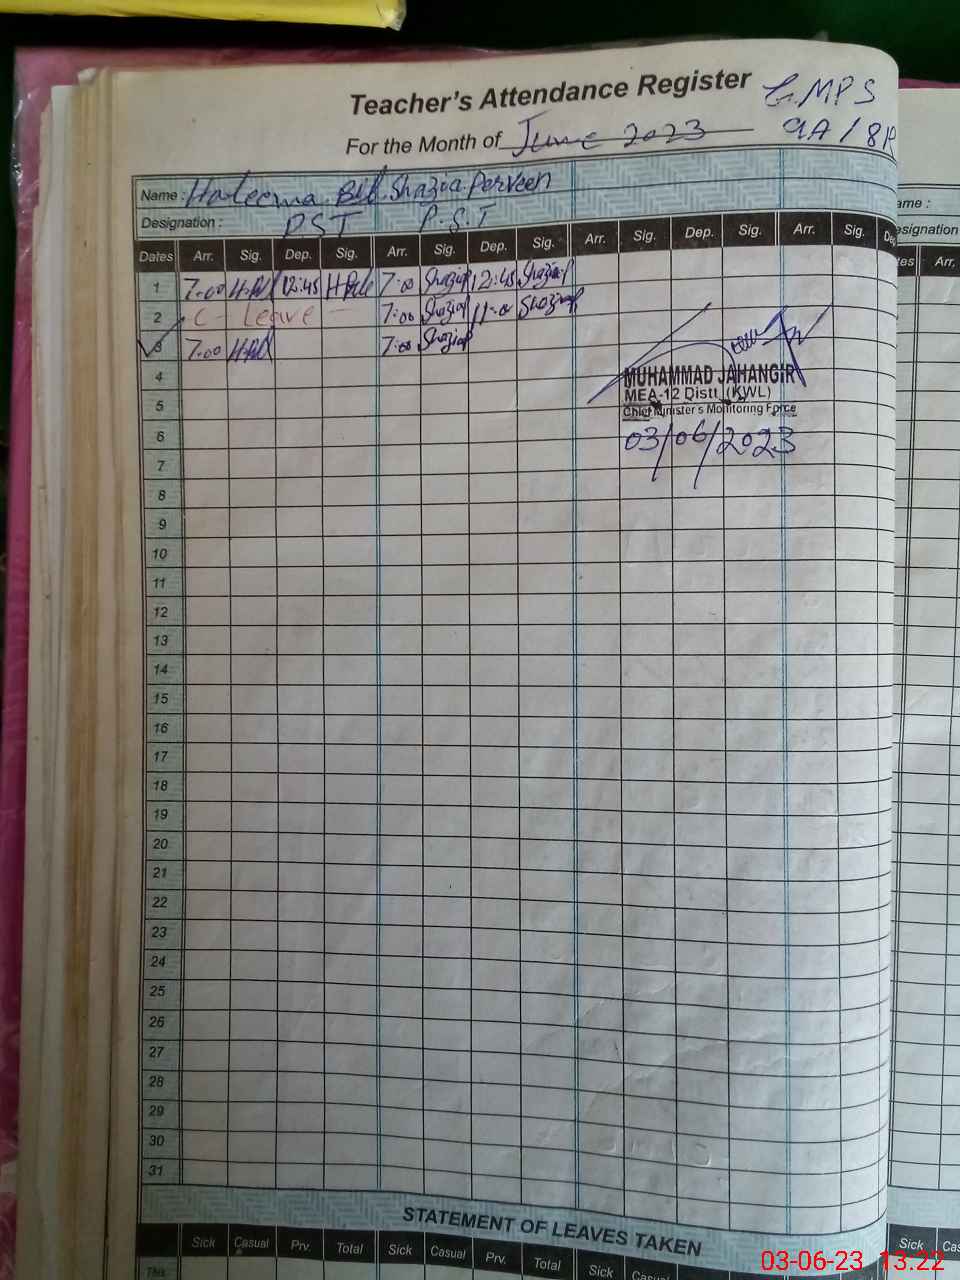 Teacher's Attendance Register GMPS
For the Month of June 2023 9A/8R
Name : Haleema Bibi Shazia Perveen
Designation : PST P.S.T
Dates Arr. Sig. Dep. Sig. Arr. Sig. Dep. Sig. Arr. Sig. Dep. Sig. Arr. Sig. Dep
1 7.00 H.Bibi 12:45 H.Bibi 7:00 Shazia 12:45 Shazia
2 C - Leave - 7:00 Shazia 11:00 Shazia
3 7.00 H.Bibi 7:00 Shazia
4
5
6
7
8
9
10
11
12
13
14
15
16
17
18
19
20
21
22
23
24
25
26
27
28
29
30
31
MUHAMMAD JAHANGIR
MEA-12 Distt. (KWL)
Chief Minister's Monitoring Force
03/06/2023
STATEMENT OF LEAVES TAKEN
Sick Casual Prv. Total Sick Casual Prv. Total Sick Casual
This
ame :
esignation
tes Arr.
Sick Cas
03-06-23 13:22